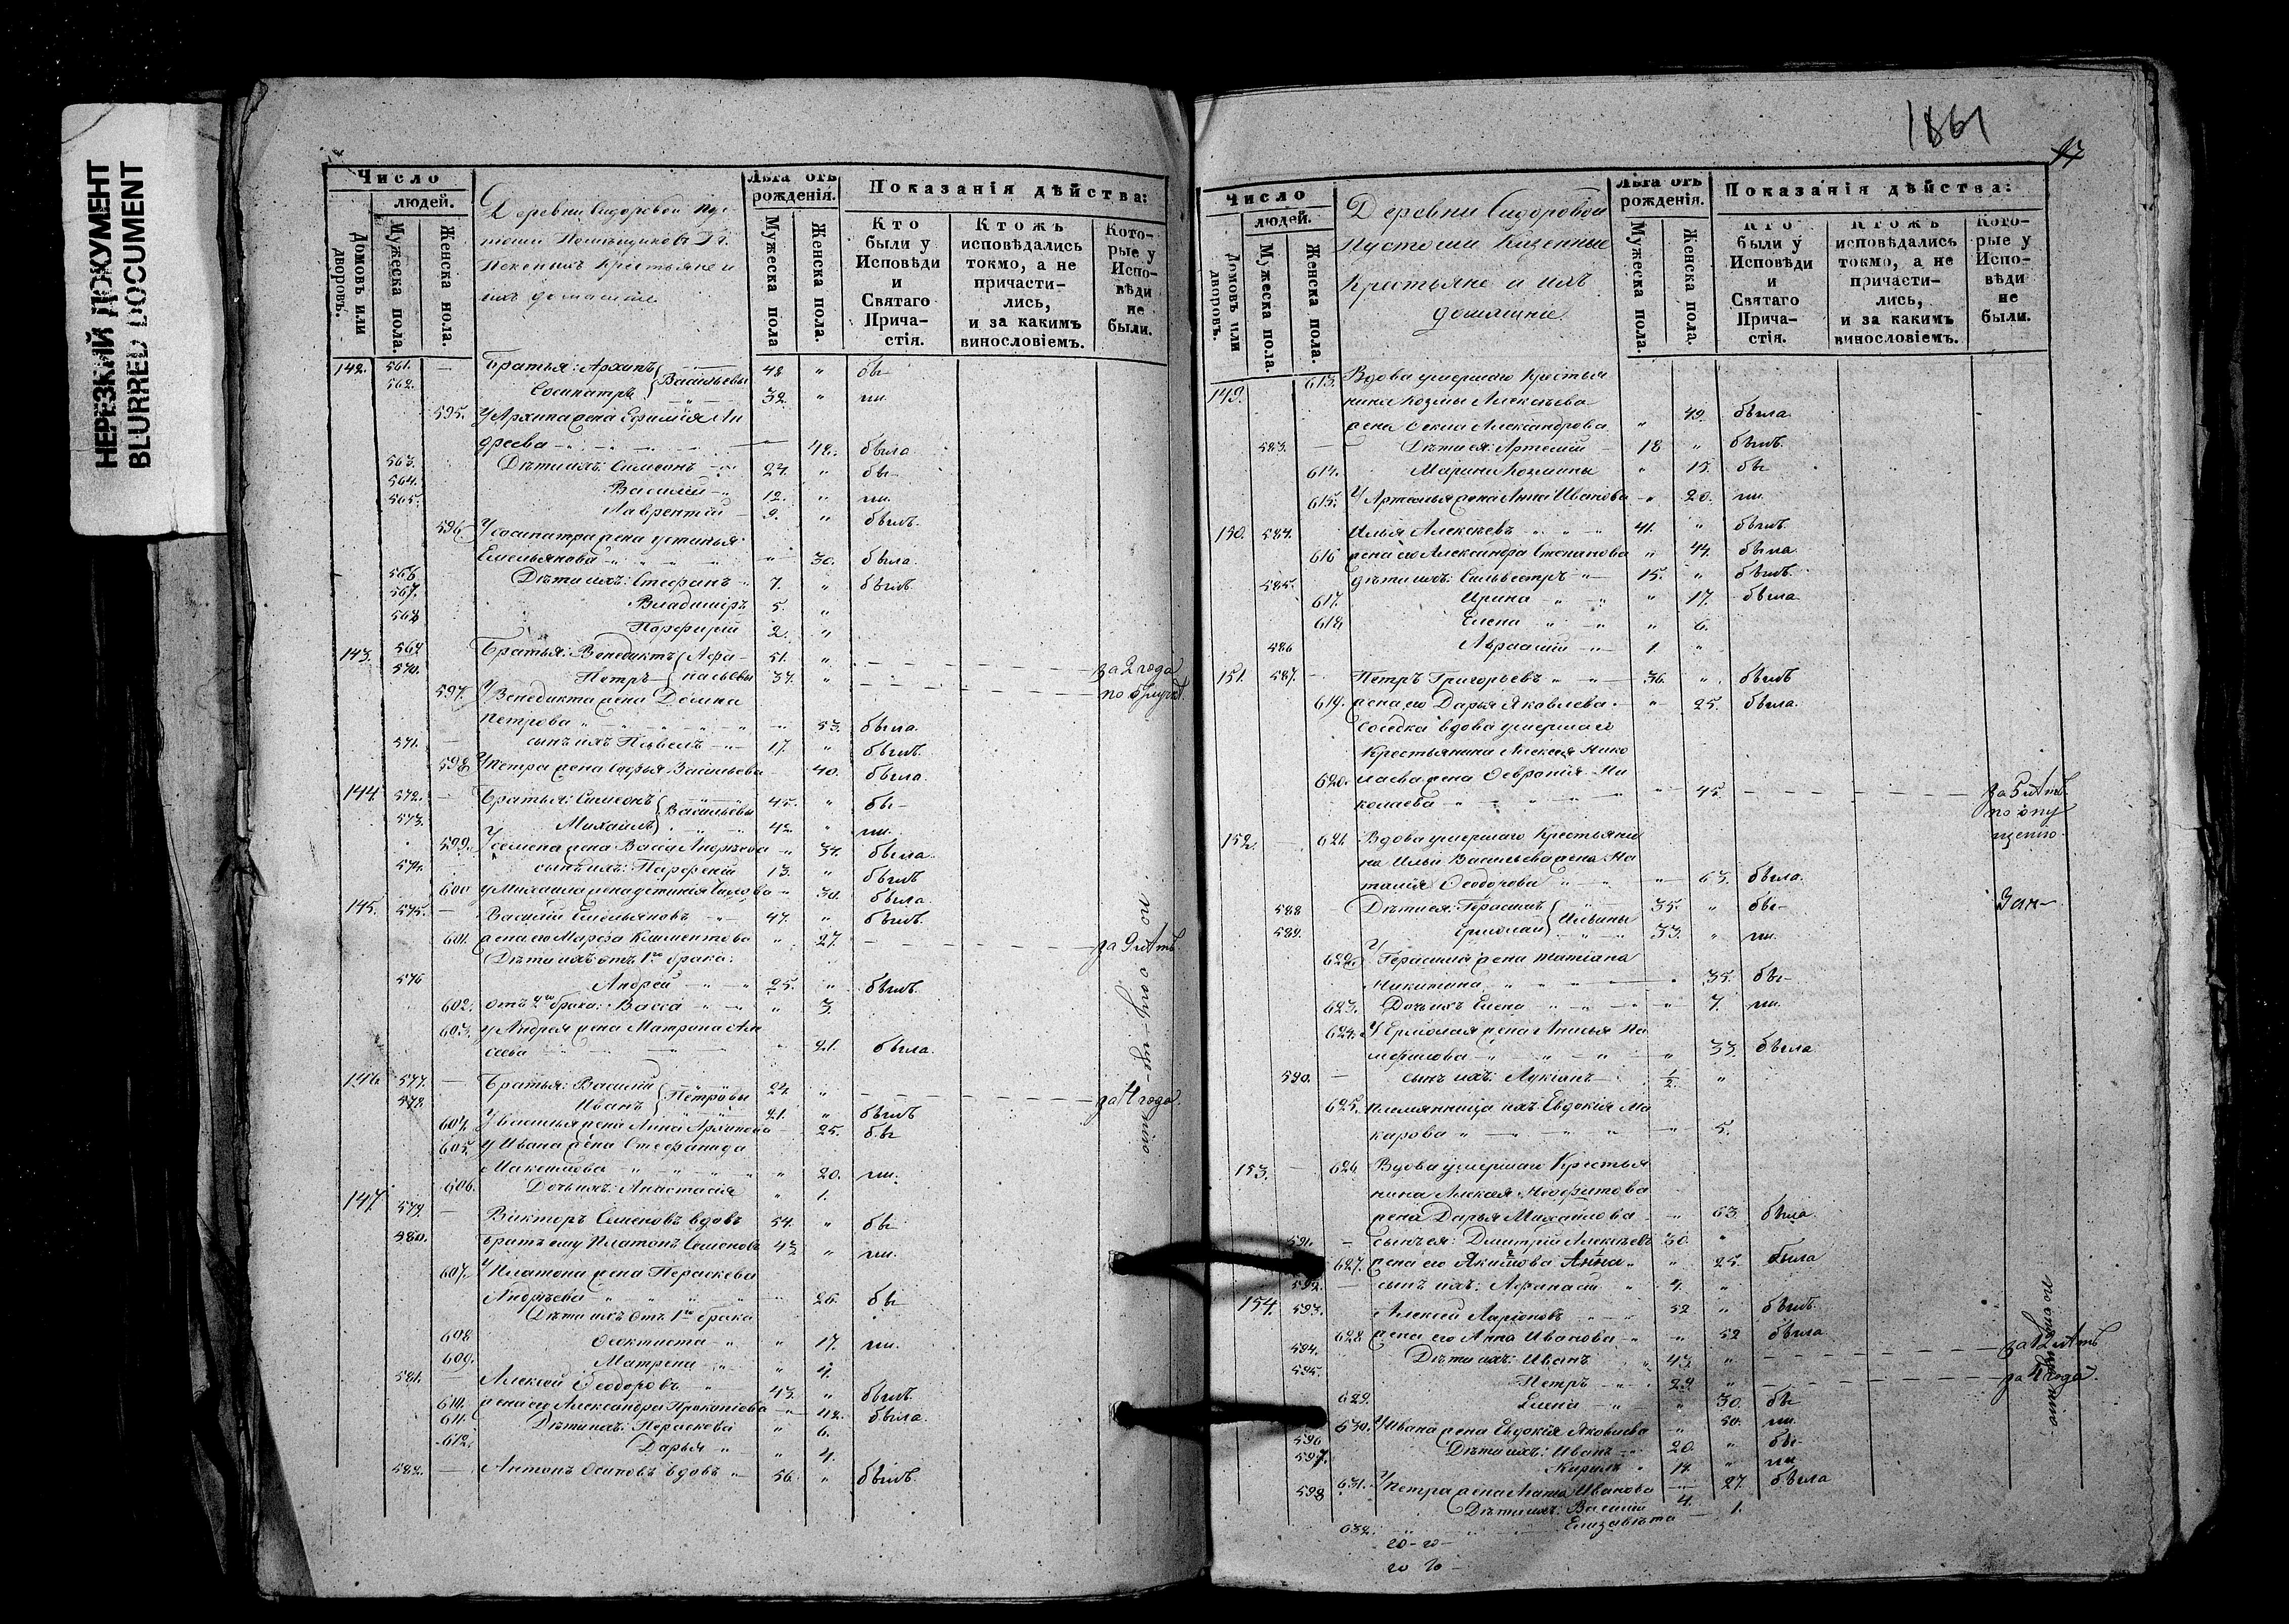 НЕРЕЗКИЙ ДОКУМЕНТ
BLURRED DOCUMENT
Число
людей.
Домовъ или дворовъ.
Мужеска пола.
Женска пола.
Деревни Сидоровой Пу-
стоши Помѣщиковъ
крестьяне и
ихъ домашніе
Лѣта отъ рожденія.
Мужеска пола
Женска пола.
Показанія дѣйства:
Кто были у Исповѣди и Святаго Прича-стія.
Ктожъ исповѣдались токмо, а не причасти-лись, и за какимъ винословіемъ.
Кото-рые у Испо-вѣди не были.
142. 561. — Братья: Архипъ Васильевы 48 " бы-
562. Сосипатръ 32. " ли.
595. У Архипа жена Ефимія Ан
дреева 48. была
563. Дѣти ихъ: Симеонъ 27. " бы-
564. Василій 12. " ли.
565. Лаврентій 9. " былъ.
596. У Сосипатра жена Устинья
Емельянова 30. была.
566. Дѣти ихъ: Стефанъ 7. " былъ
567. Владиміръ 5. "
568 Порфирій 2. "
143. 569 Братья: Венедиктъ Афа- 51. " за 2 года
570. Петръ насьевы 37. "
597. У Венедикта жена Домна
Петрова 53. была.
571. — сынъ ихъ Павелъ 17. " былъ.
598 У Петра жена Софья Васильева 40. была.
144. 572. — Братья: Симеонъ Васильевы 45. " бы-
573. Михаилъ 42. " ли.
599. У Семена жена Васса Андреева 34. была.
574. сынъ ихъ: Парфеній 13. " былъ
600 У Михаила жена Устинія 30. была.
145. 575. — Василій Емельяновъ 47. " былъ.
601. жена его Марѳа Климентова " 27. за 9 лѣтъ.
Дѣти ихъ отъ 1го брака:
576 Андрей 25. " былъ.
602. отъ 2го брака: Васса " 3.
603. У Андрея жена Матрона
сеева " 21. была.
по опу-ще-нію.
146. 577. — Братья: Василій Петровы 24. " за 4 года.
578. Иванъ 21. " былъ
604. У Василья жена Анна Архипова 25. бы
605. У Ивана жена Стефанида
Максимова " 20. ли.
606. Дочь ихъ: Анастасія " 1.
147. 579. — Викторъ Семеновъ вдовъ 54. " бы-
580. братъ ему Платонъ Семеновъ 43 " ли.
607. У Платона жена Параскева
Андреева 26. бы-
Дѣти ихъ отъ 1го брака
608 Ѳеоктиста " 17. ли.
609. Матрена " 4.
581. — Алексѣй Ѳеодоровъ 43. " былъ
610. жена его Александра Прокопіева 42. была.
611. Дѣти ихъ: Параскева " 6.
612. Дарья " 4.
582. — Антонъ Осиповъ вдовъ 56. " былъ.
1861
17
Число
людей.
Домовъ или дворовъ.
Мужеска пола.
Женска пола.
Деревни Сидоровой
Пустоши Казенные
Крестьяне и ихъ
домашніе.
Лѣта отъ рожденія.
Мужеска пола.
Женска пола.
Показанія дѣйства:
Кто были у Исповѣди и Святаго Прича-стія.
Ктожъ исповѣдались токмо, а не причасти-лись, и за какимъ винословіемъ.
Кото-рые у Испо-вѣди не были.
149. 613. Вдова умершаго крестья
нина Козмы Алексѣева
жена Александрова " 49. была.
583. — Дѣти ея: Артемій 18 " былъ.
614. Марина Козмины " 13. бы
615. У Артемья жена Анна Иванова " 20. ли.
150. 584. Илья Алексѣевъ 41. " былъ.
616 жена его Александра Степанова " 44. была.
585. дѣти ихъ: Сильвестръ 15. " былъ.
617. Ирина " 17. была
618. Елена " 6.
586 1. "
151. 587. — Петръ Григорьевъ 36. " былъ
619. жена его Дарья Яковлева " 25. была.
Сосѣдка вдова умершаго
Крестьянина Алексѣя Нико
620. лаева жена Ни
колаева 45. за 5 лѣтъ
по опу
щенію.
152. — 621. Вдова умершаго крестьяни
на Ильи Васильева жена На
талія Ѳеодорова 63. была.
588 — Дѣти ея: Герасимъ Ильины 35. " бы-
589. Ермолай 33. " ли.
622. У Герасима жена Татіана
Никитина 35. бы-
623. Дочь ихъ Елена " 7. ли.
624. У Ермолая жена Анисья Па
" 33. была
590. — сынъ ихъ: Лукіанъ ½ "
625. племянница ихъ: Евдокія Ма
карова 5.
153. — 626. Вдова умершаго Крестья
нина Алексѣя Неофитова
жена Дарья Михайлова 63. была
591. — сынъ ея: Дмитрій Алексѣевъ 30. "
627. жена его Акимова Анна " 25. была
592. — сынъ ихъ: Афанасій 4. "
154. 593. Алексѣй Ларіоновъ 52 " былъ.
628 жена его Анна Иванова " 52 была
594. Дѣти ихъ: Иванъ 43. " за 12 лѣтъ
595. Петръ 29. " за 4 года.
629. Елена " 30. бы
630. У Ивана жена Евдокія Яковлева 50. ли.
596 Дѣти ихъ: Иванъ 20. " бы-
597. Кирилъ 14. " ли
631. У Петра жена Иванова 27. была
598 Дѣти ихъ: Василій 4.
632. Елизавета 1.